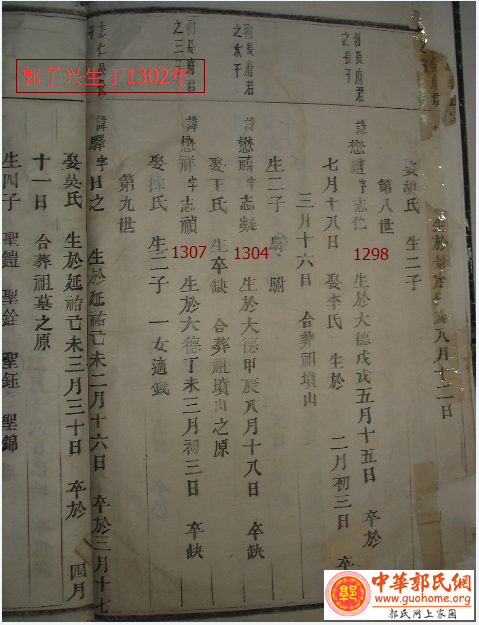 娶胡氏 生二子
八月十二日
第八世
創長府君之長子
諱懋禮字志仁 生於大德戊戌五月十五日 卒於
七月十八日 娶李氏 生於 二月初三日 卒
三月十六日 合葬祖墳山
生二子 駙
初長府君之次子
諱懋禧字志凝 生於大德甲辰八月十八日 卒缺
娶王氏 生卒缺 合葬祖墳山之原
初長府君之三子
諱懋祥字志禎 生於大德丁未三月初三日 卒缺
娶陳氏 生二子 一女適戴
第九世
志仁公長子
諱驛字日之 生於延祐己未二月十六日 卒於三月十七
娶吳氏 生於延祐己未三月三十日 卒於 四月
十一日 合葬祖墓之原
生四子 聖鎧 聖銓 聖鈺 聖錦
郭子兴生于1302年
1298
1304
1307
中華郭氏網
www.guohome.org
郭氏网上家园